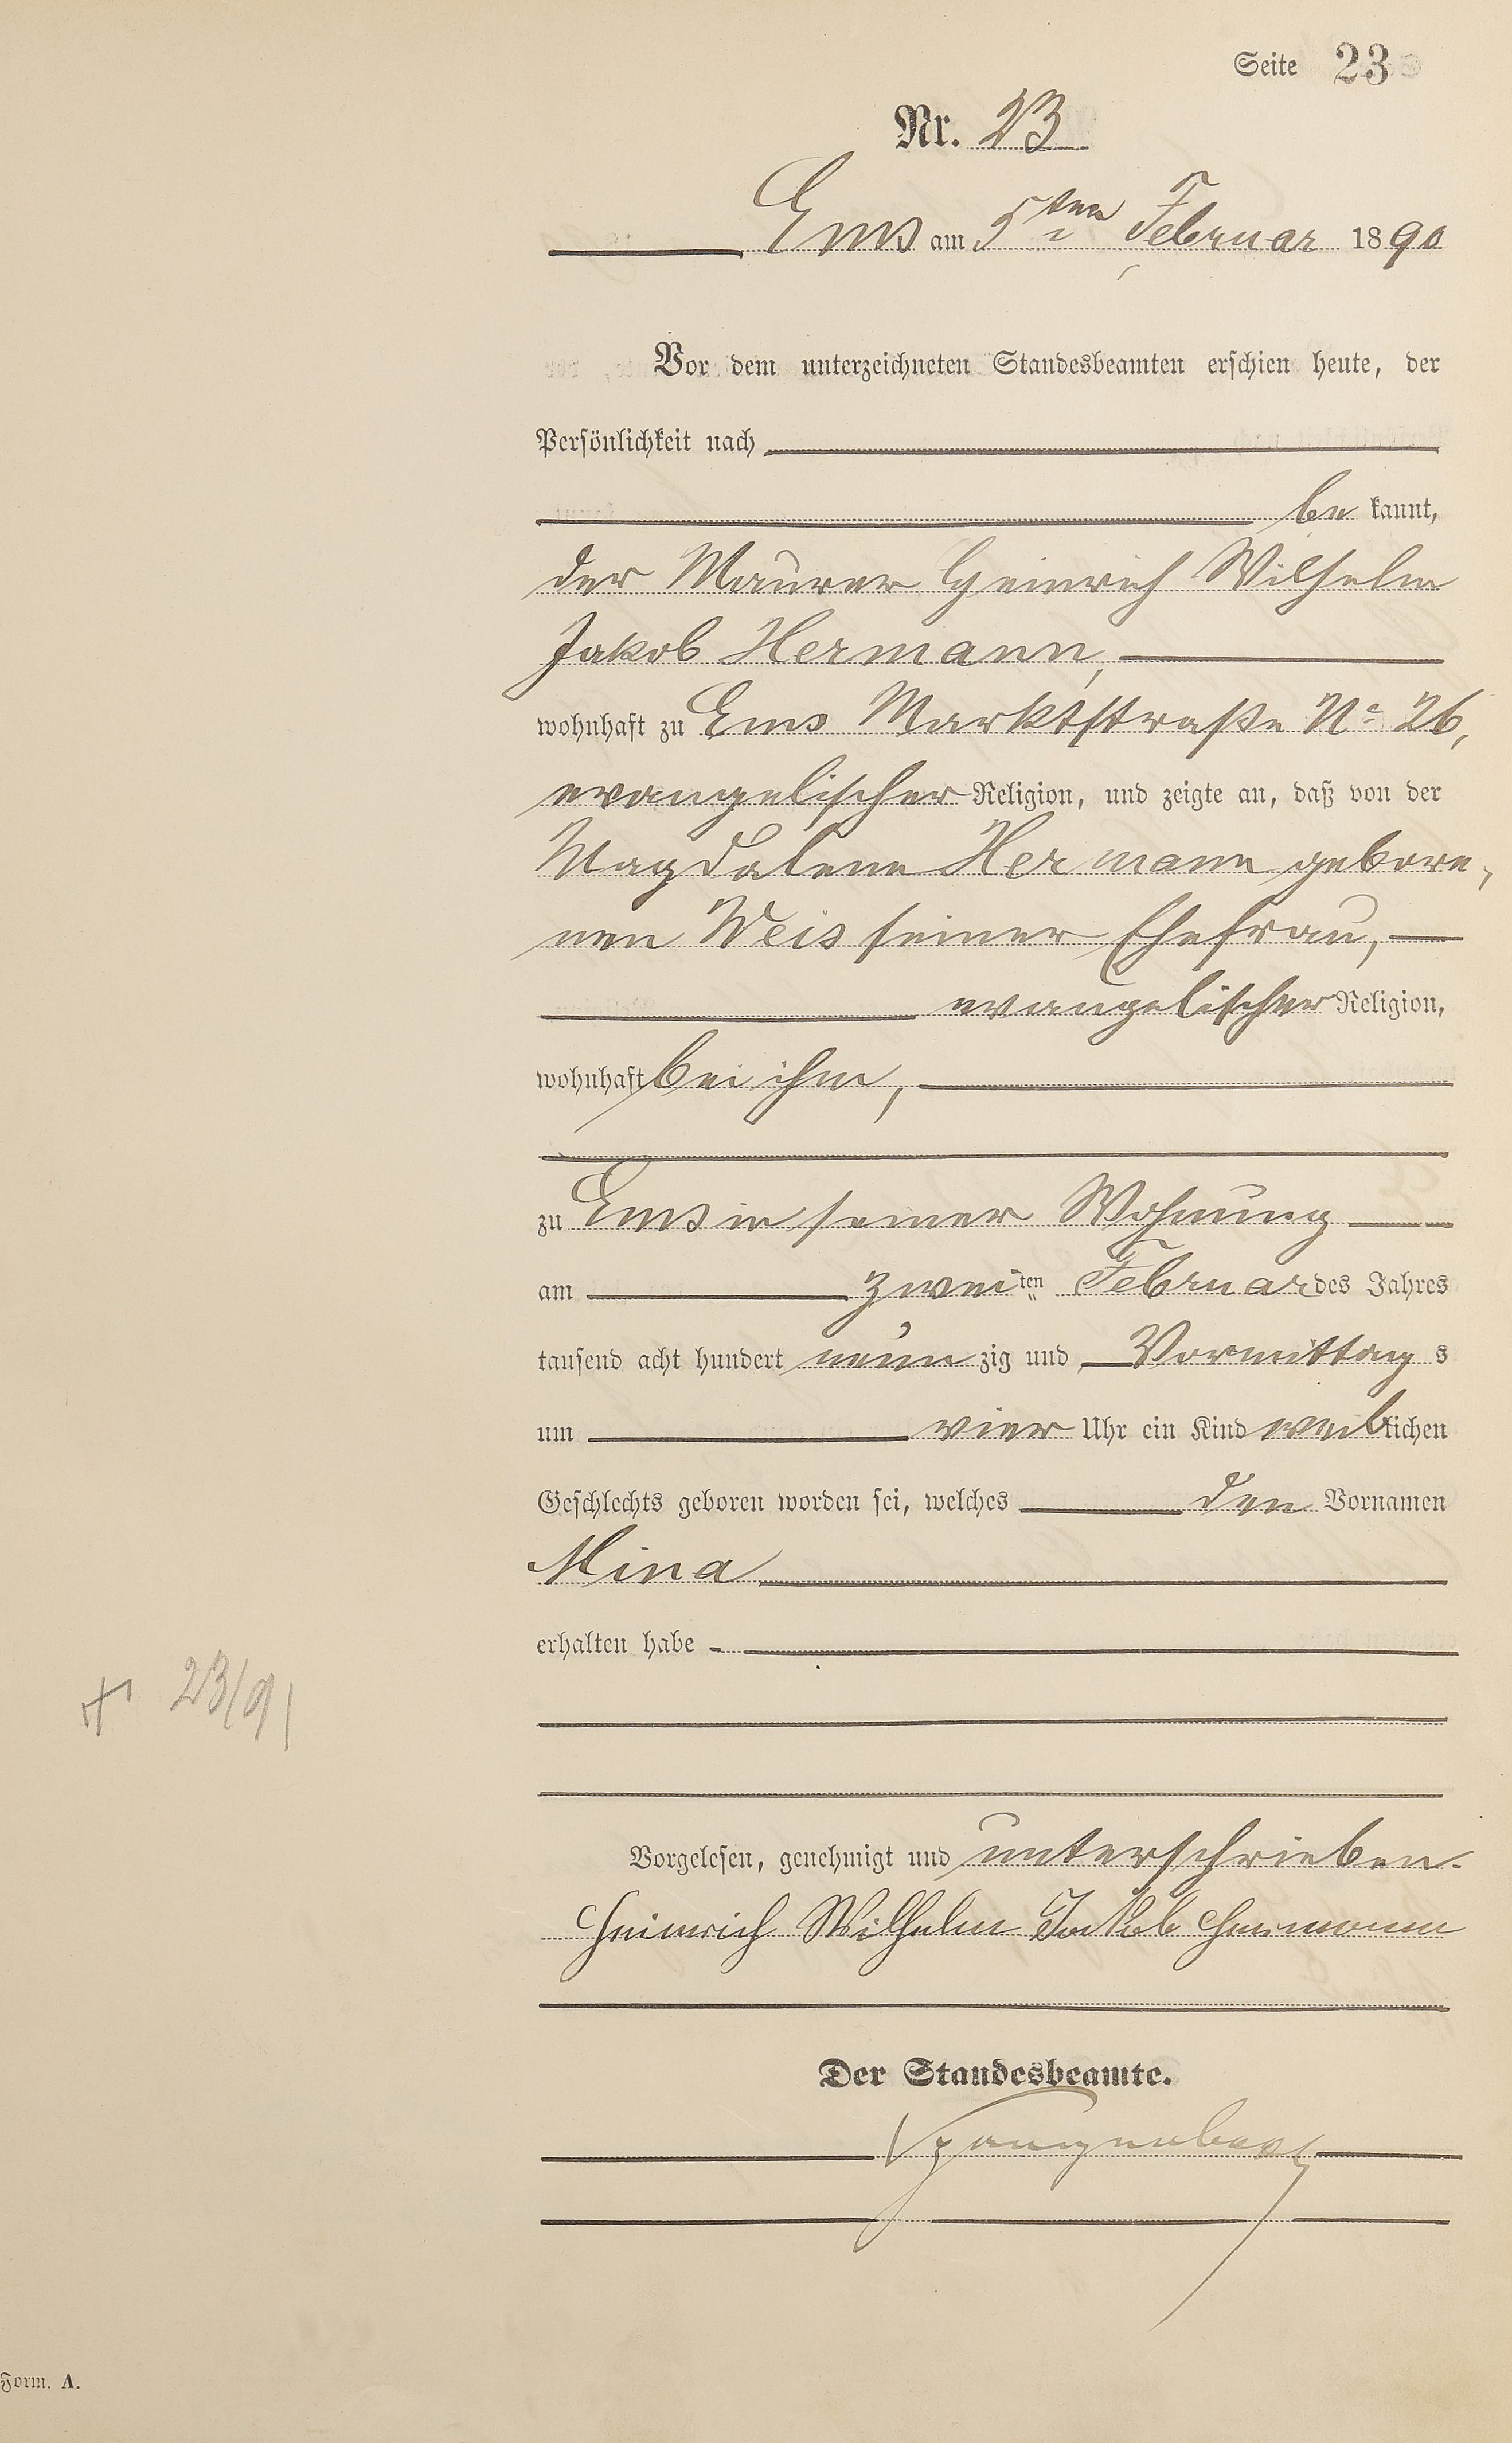 Seite 23
Nr. 23
Ems am 5ten Februar 1890
Vor dem unterzeichneten Standesbeamten erschien heute, der
Persönlichkeit nach
be kannt,
der Maurer Heinrich Wilhelm
Jakob Hermann,
wohnhaft zu Ems Marktstraße No 26,
evangelischer Religion, und zeigte an, daß von der
Magdalena Hermann gebore,
nen Weis seiner Ehefrau,
evangelischer Religion,
wohnhaft bei ihm,
zu Ems in seiner Wohnung
am zweiten Februar des Jahres
tausend acht hundert neun zig und Vormittag s
um vier Uhr ein Kind weiblichen
Geschlechts geboren worden sei, welches den Vornamen
Mina
erhalten habe
+ 23/91
Vorgelesen, genehmigt und unterschrieben.
Heinrich Wilhelm Jakob Hermann
Der Standesbeamte.
Form. A.